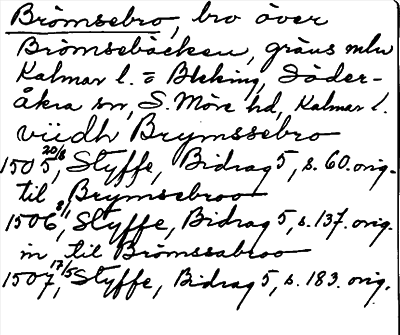 Brömsebro, bro över
Brömsebäcken, gräns mln
Kalmar l. o Bleking, Söder-
åkra sn, S. Möre hd, Kalmar l.
viidh Brymssebro
1505 20/8, Styffe, Bidrag 5, s. 60. orig.
til Brymsebroo
1506 8/1, Styffe, Bidrag 5, s. 137. orig.
in til Brömssabroo
1507 17/5, Styffe, Bidrag 5, s. 183. orig.